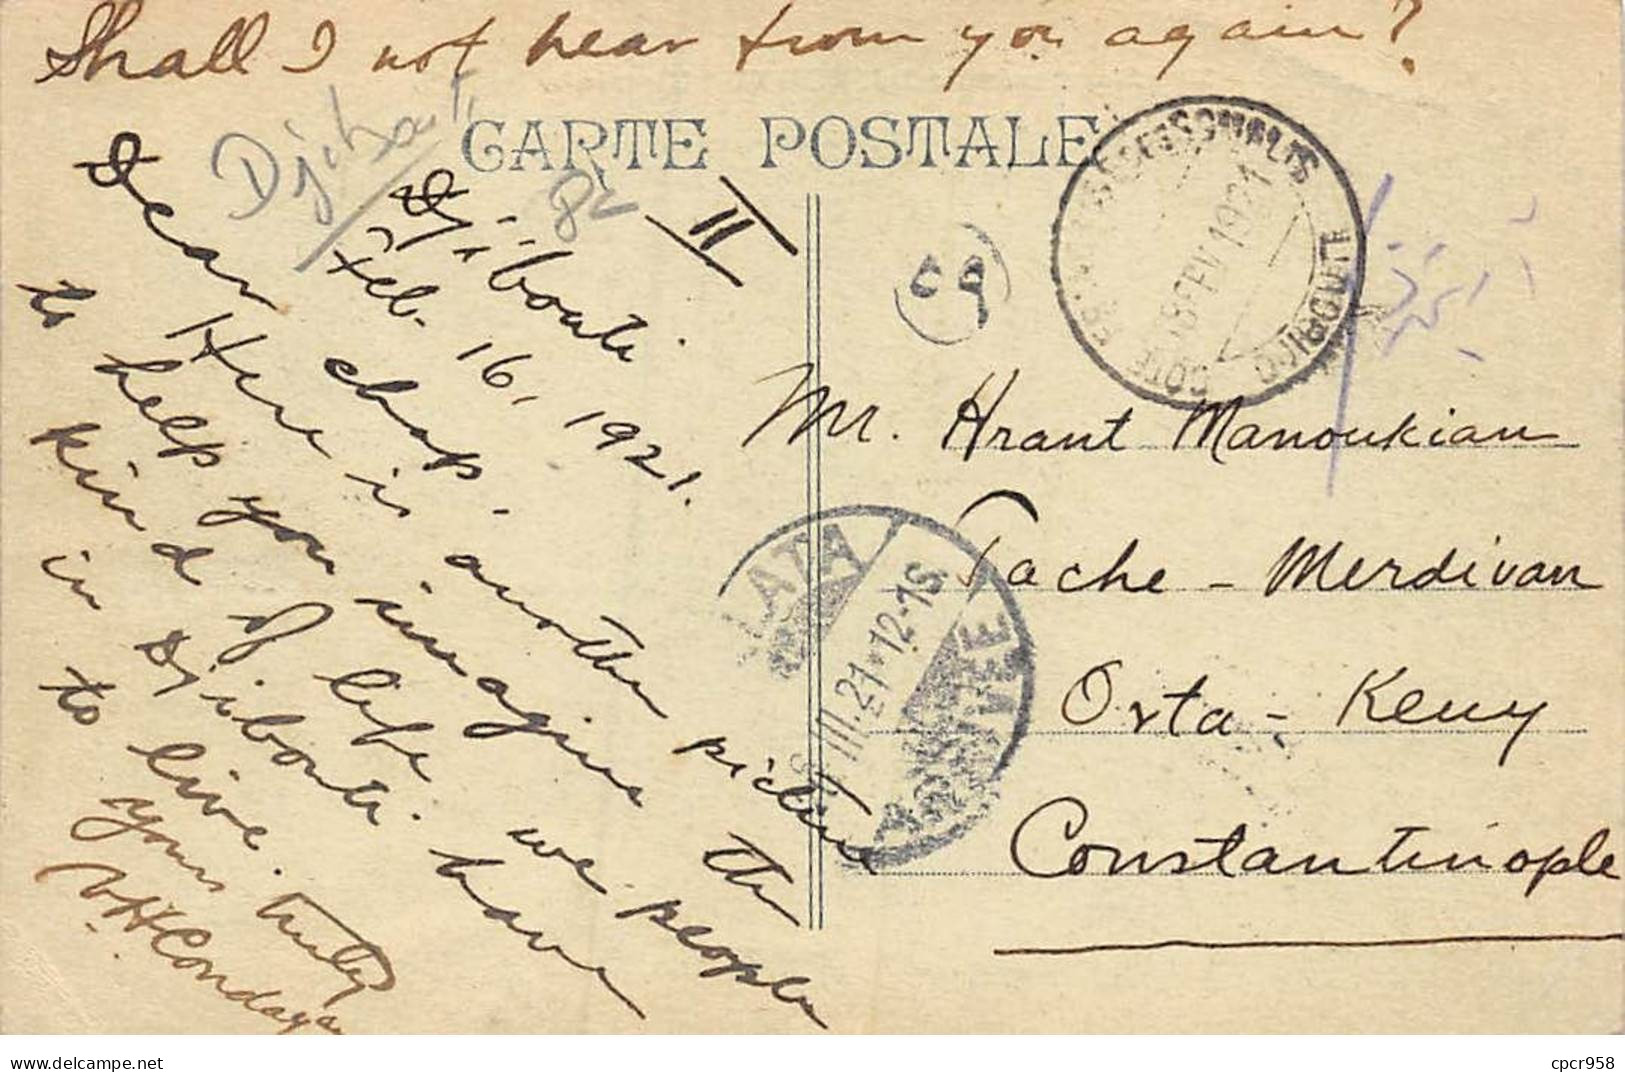 Shall I not hear from you again?
Djibouti
82
CARTE POSTALE
II
Djibouti
Feb. 16, 1921.
Dear chap.
Here is another picture
to help you imagine the
kind of life we people
in Djibouti have
to live.
yours truly
V. H. Condayan
C9
COTE DES SOMALIS
18 FEV 1921
DJIBOUTI
Mr. Hrant Manoukian
Tache - Merdivan
Orta - Keuy
Constantinople
III. 21 * 12-1S
cpcr958